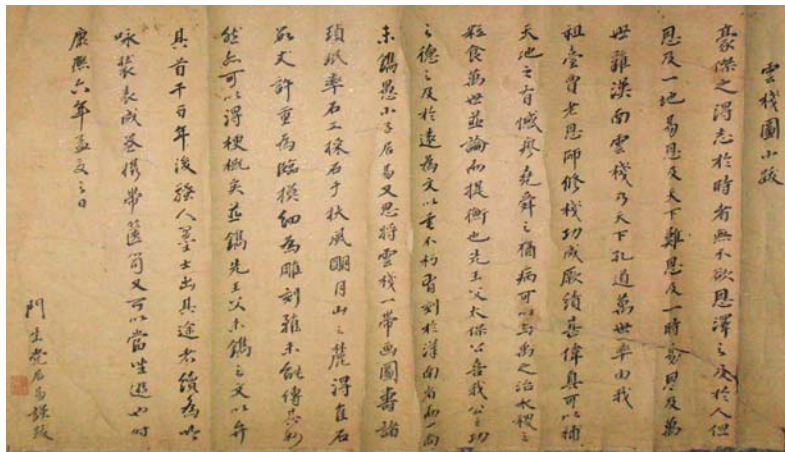 雲棧圖小跋
豪傑之得志於時者無不欲恩澤之及於人但
恩及一地易恩及天下難恩及一時易恩及萬
世難漢南雲棧乃天下孔道萬世率由我
祖臺賈老恩師修棧功成厥績甚偉真可以補
天地之有憾療堯舜之猶病可以与禹之治水稷之
粒食萬世並論而提衡也先王父太保公喜我公之功
之德之及於遠為文以垂不朽有刻於漢南者而一尚
未鐫愚小子居易又思將雲棧一帶画圖壽諸
珉率石工採石于扶風明月山之麓得良石
數丈許重為臨摸細為雕刻雖未能傳其形
然亦可以得梗概矣並鐫先王父未鐫之文以弁
其首千百年後騷人墨士出其途者續為吟
咏裝表成卷攜帶篋笥又可以當坐遊也时
康熙六年孟夏之日
門生党居易謹跋